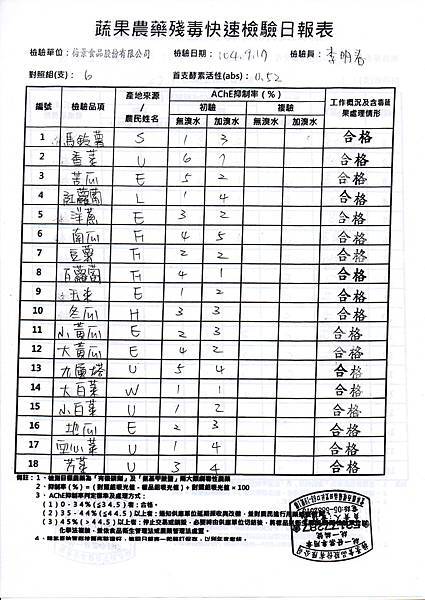 蔬果農藥殘毒快速檢驗日報表
檢驗單位: 裕景食品股份有限公司 檢驗日期: 104.9.17 檢驗員: 李明
對照組(支): 6 首支酵素活性(abs): 0.52
編號 檢驗品項 產地來源/農民姓名 AChE抑制率(%) 工作概況及含毒蔬果處理情形
初驗 複驗
無溴水 加溴水 無溴水 加溴水
1 馬鈴薯 S 1 3 合格
2 香菜 U 6 7 合格
3 苦瓜 E 5 2 合格
4 紅蘿蔔 L 1 4 合格
5 洋蔥 E 3 2 合格
6 南瓜 4 5 合格
7 豆薯 2 2 合格
8 白蘿蔔 4 1 合格
9 玉米 E 1 2 合格
10 冬瓜 H 3 3 合格
11 小黃瓜 E 2 3 合格
12 大黃瓜 E 4 2 合格
13 九層塔 U 5 4 合格
14 大白菜 W 1 1 合格
15 小白菜 U 1 2 合格
16 地瓜 E 2 3 合格
17 空心菜 U 1 4 合格
18 芳菜 U 3 4 合格
備註:1、檢測目標農藥為「有機磷劑」及「氨基甲酸鹽」兩大類劇毒性農藥
2、抑制率(%)=(對照組吸光值-樣品組吸光值)÷對照組吸光值×100
3、AChE抑制率判定標準及處理方式:
(1) 0-34%(≦34.5)者:合格。
(2) 35-44%(≦44.5)以上者:通知供應單位延期採收與改善,並對農民進行
(3) 45%(>44.5)以上者:停止交易或銷毀,必要時由供應單位切結後,
化學法複驗,並依食品衛生管理法或農藥管理法處置。